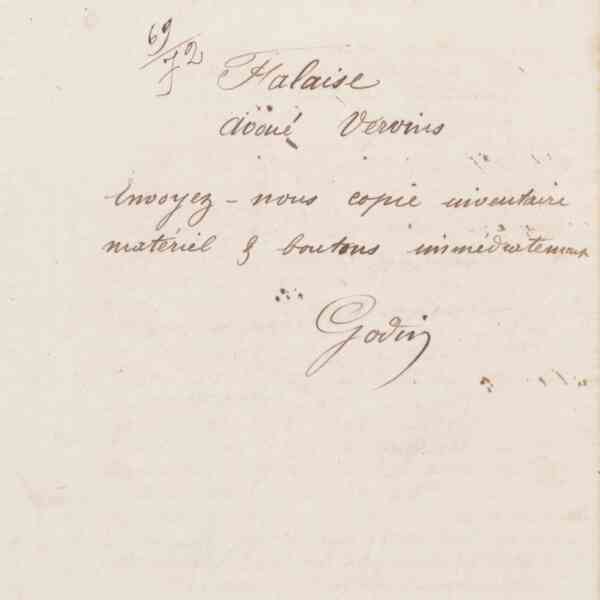 69/72
Halaise
avoué Vervins
Envoyez-nous copie inventaire
matériel & boutons immédiatement
Godin